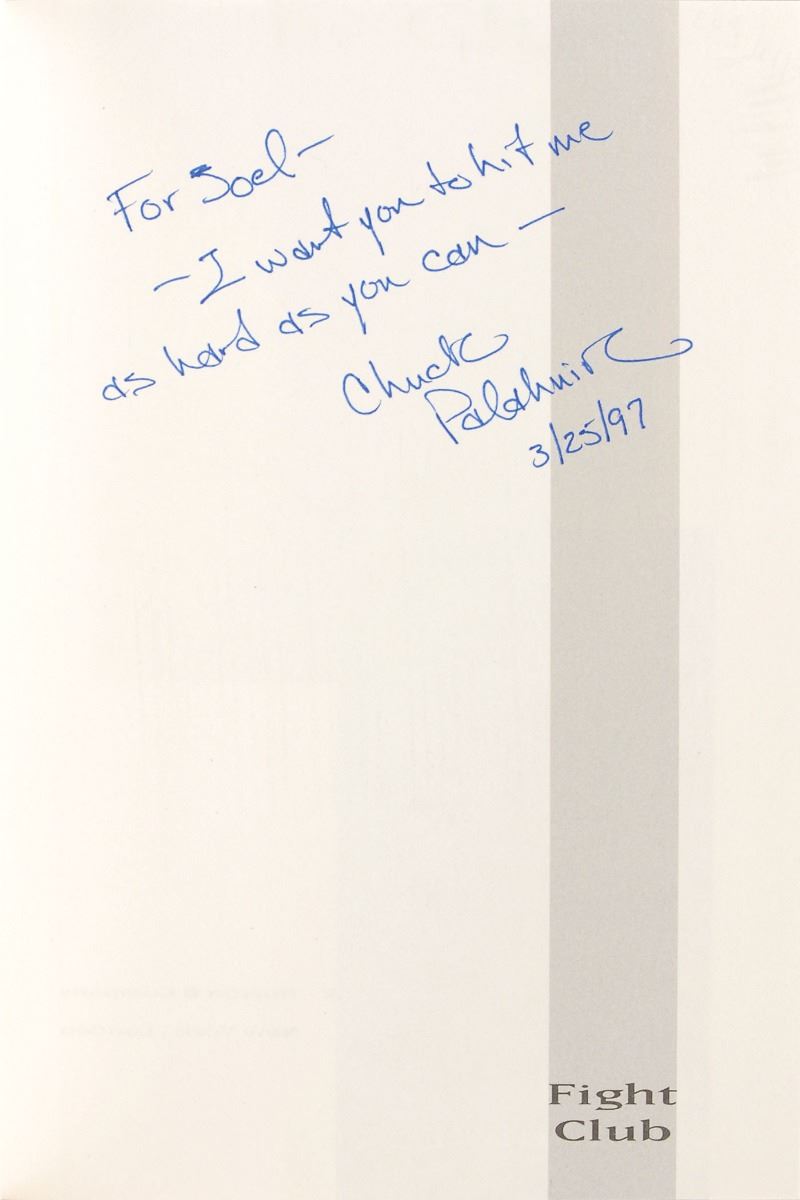 For Joel–
–I want you to hit me
as hard as you can–
Chuck
Palahniuk
3/25/97
Fight
Club